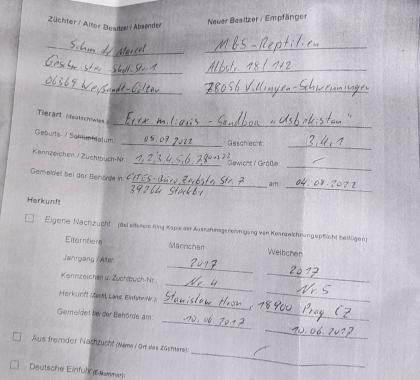 Züchter / Alter Besitzer / Absender Neuer Besitzer / Empfänger
Schmidt Marcel M&S-Reptilien
Geschwister Scholl-Str. 1 Albstr. 18 1+2
06369 Weißandt-Gölzau 78056 Villingen-Schwenningen
Tierart Eryx miliaris - Sandboa "Usbekistan"
Geburts- / Schlupfdatum: 05.07.2022 Geschlecht: 3,4,1
Kennzeichen / Zuchtbuch-Nr. 1,2,3,4,5,6,7,8 Gewicht / Größe: /
Gemeldet bei der Behörde in: CITES-Büro Zerbster Str. 7 am: 04.08.2022
39264 Steckby
Herkunft
Eigene Nachzucht
Elterntiere Männchen Weibchen
Jahrgang / Alter: 2017 2017
Kennzeichen u. Zuchtbuch-Nr.: Nr. 4 Nr. 5
Herkunft Stanislaw Hron, 18900 Prag CZ
Gemeldet bei der Behörde am: 10.06.2017 10.06.2017
Aus fremder Nachzucht (Name / Ort des Züchters): /
Deutsche Einfuhr